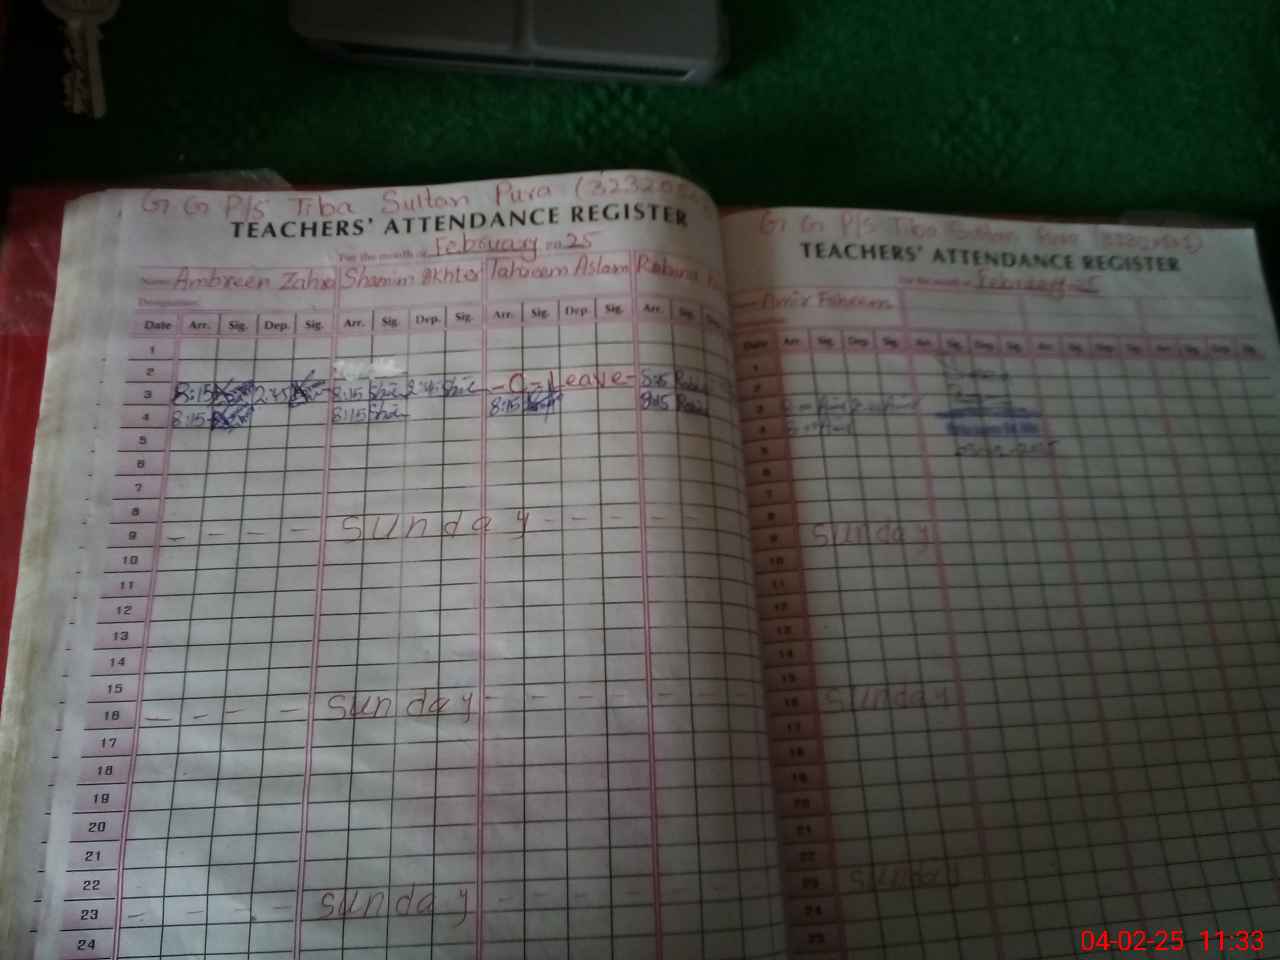 G.G P/S Tiba Sultan Pura
TEACHERS' ATTENDANCE REGISTER
For the month of February 2025
Name Ambreen Zahra Shamim Akhter Tahreem Aslam Robina
Designation
Date Arr. Sig. Dep. Sig. Arr. Sig. Dep. Sig. Arr. Sig. Dep. Sig. Arr. Sig. Dep.
1
2
3 8:15 2:45 8:15 2:45 - C-Leave- 8:15
4 8:15 8:15 8:15 8:15
5
6
7
8
9 - - - - Sunday - - - - - -
10
11
12
13
14
15
16 - - - - Sunday - - - - - -
17
18
19
20
21
22
23 - - - - Sunday - - - - - -
24
G.G P/S Tiba Sultan Pura
TEACHERS' ATTENDANCE REGISTER
For the month of February
Amir Faheem
Date Arr. Sig. Dep. Sig. Arr. Sig. Dep. Sig. Arr. Sig. Dep. Sig. Arr. Sig. Dep. Sig.
1
2
3
4
5
6
7
8
9 Sunday
10
11
12
13
14
15
16 Sunday
17
18
19
20
21
22
23 Sunday
24
25
04-02-25 11:33